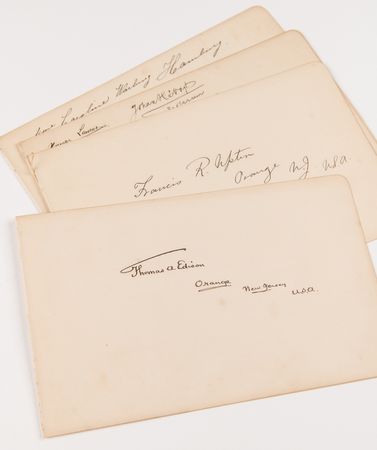 Caroline Wiebing Hamburg
Francis R. Upton
Orange NJ USA.
Thomas A. Edison
Orange New Jersey U.S.A.